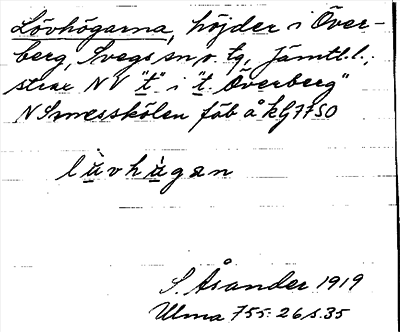 Lövhögarna, höjder i Över-
berg, Svegs sn o. tg, Jämtl. l.;
strax NV "t" i "t Överberg"
N Smesskölen fäb å kG7750
lävhägan
S. Åsander 1919
Ulma 755. 26.5.35